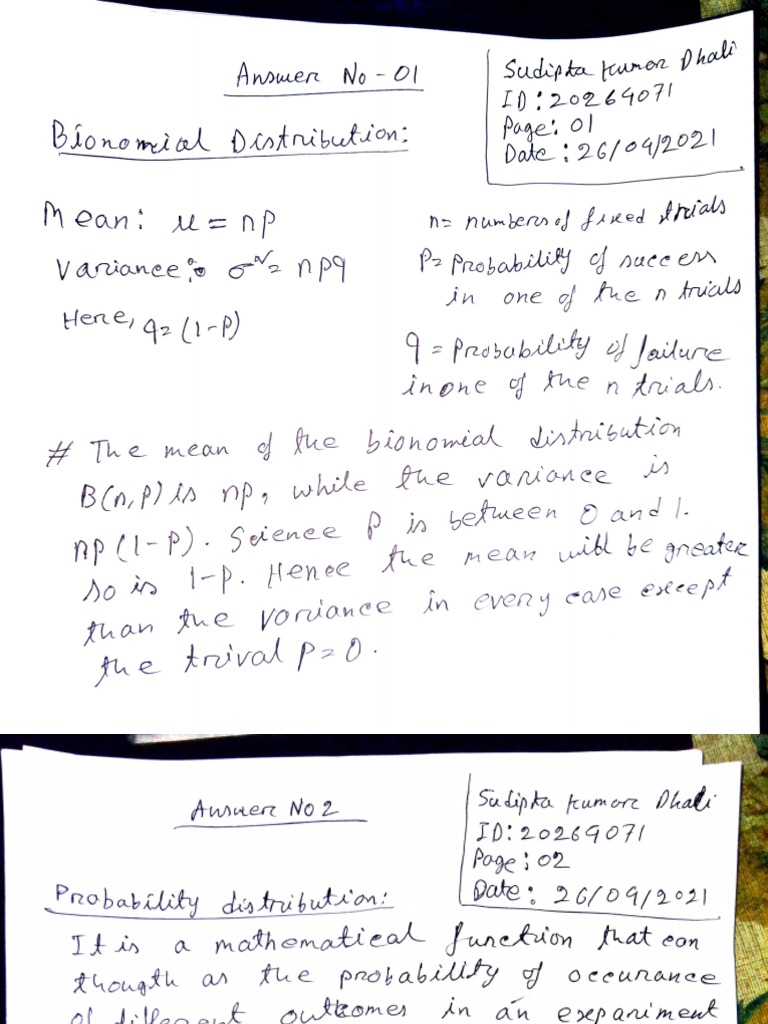 Answer No - 01
Sudipta Kumar Dhali
ID: 20269071
Page: 01
Date: 26/09/2021
Bionomial Distribution:
Mean: μ = np
Variance: σ² = npq
Here, q = (1-p)
n = numbers of fixed trials
P = Probability of success
in one of the n trials
q = Probability of failure
in one of the n trials.
# The mean of the bionomial distribution
B(n,p) is np, while the variance is
np (1-P). Science P is between 0 and 1.
so is 1-p. Hence the mean will be greater
than the variance in every case except
the trival P = 0.
Answer No 2
Sudipta Kumar Dhali
ID: 20269071
Page: 02
Date: 26/09/2021
Probability distribution:
It is a mathematical function that can
thougth as the probability of occurance
of different outcomes in an expariment